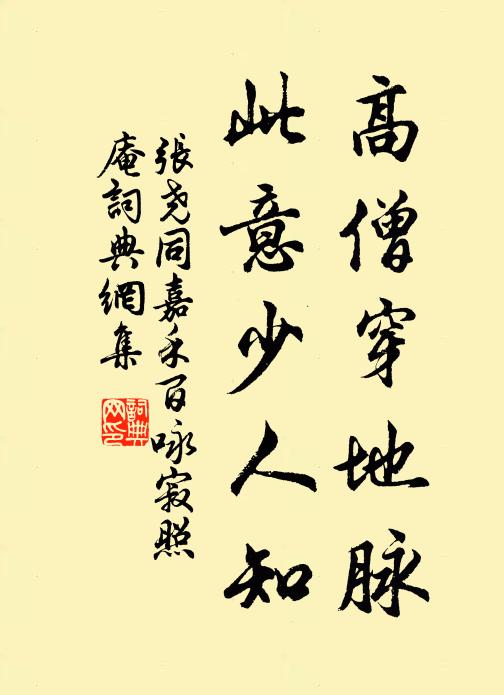 高僧穿地脉
此意少人知
張尧同嘉禾百咏寂照
庵詞典網集
詞典
网印